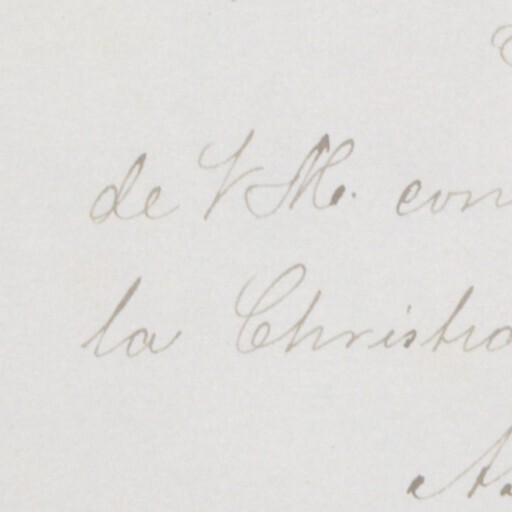 de V M. con
la Christia
A